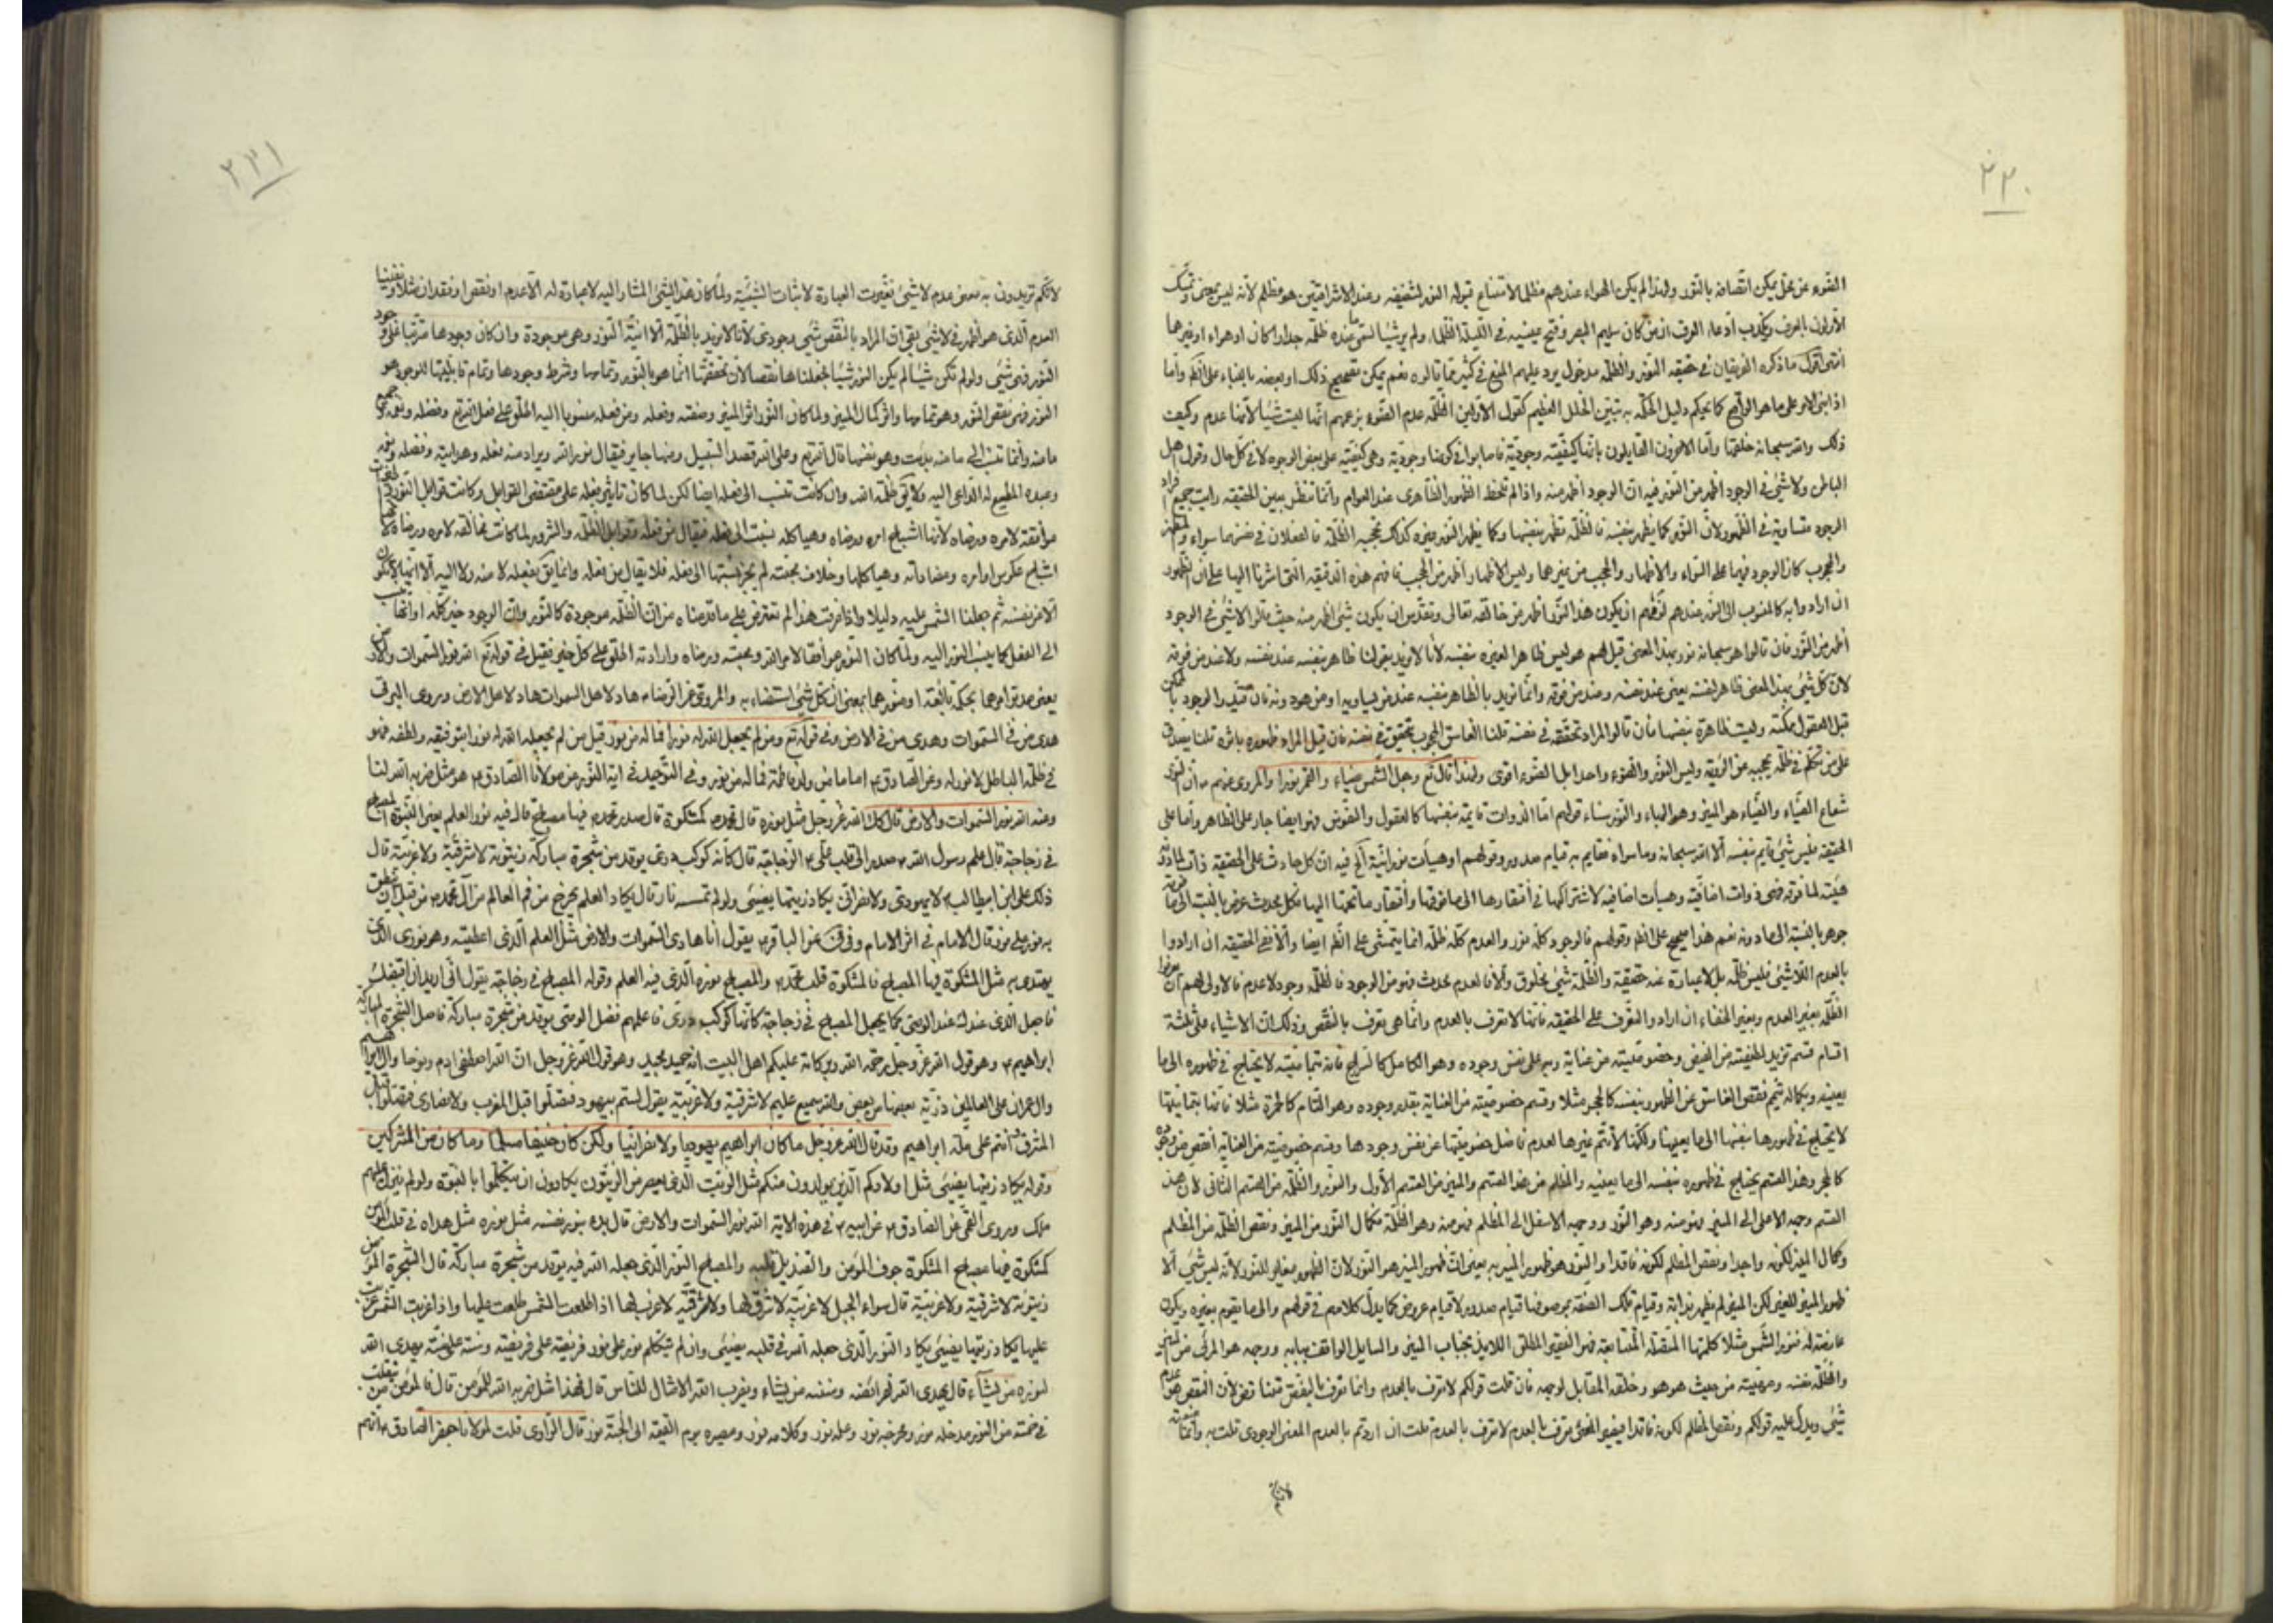 ٢٣٠
الضوء عن محل يمكن اتصافه بالنور ولهذا لم يكن الهواء عندهم مظلما لامتناع قبوله النور لشفيفه وعند الاشراقيين هو مظلم لانه ليس
الاولون بالعرف وبكذب ادعاء العرف اذ من كان سليم البصر وفتح عينيه في الليلة الظلماء ولم ير شيئا سمى ما عنده ظلمة جدارا كان او هواء او غيرهما
انتهى اقول ما ذكره الفريقان في حقيقة النور والظلمة مدخول يرد عليهم المنع في كثير مما قالوه نعم يمكن تصحيح ذلك او بعضه بالبناء على الظاهر واما
اذا بنى الامر على ما هو الواقع كما يحكم دليل الحكمة به تبين الخلل العظيم كقول الاولين الظلمة عدم الضوء بزعمهم انها ليست شيئا لانها عدم وكيف
ذلك والله سبحانه خلقها واما الاخرون القايلون بانها كيفية وجودية فاصابوا في كونها وجودية وهي كيفية على بعض الوجوه لا في كل حال وقول اهل
الباطن ولا شيء في الوجود اظهر من النور فيه ان الوجود اظهر منه واذا لم تلحظ الظهور الظاهري عند العوام وانما تنظر بعين الحقيقة رايت جميع افراد
الوجود متساوية في الظهور لان النور كما يظهر بنفسه فالظلمة تظهر بنفسها وكما يظهر النور غيره كذلك تحجبه الظلمة فالفعلان في نفسهما سواء
والمحجوب كان الوجود فيهما على السواء والاظهار والحجب من غيرها وليس الاظهار اظهر من الحجب فافهم هذه الدقيقة التي اشرنا اليها على ان الظهور
ان ارادوا به كالمنسوب الى النور عندهم لزمهم ان يكون هذا النور اظهر من خالقه تعالى وتقدس ان يكون شيء اظهر منه حيث قالوا لا شيء في الوجود
اظهر من النور فان قالوا هو سبحانه نور بهذا المعنى قيل لهم هو ليس ظاهرا لغيره بنفسه لانا لا نريد بقولنا ظاهر بنفسه عند نفسه ولا عند من فوقه
لان كل شيء بهذا المعنى ظاهر لنفسه يعني عند نفسه وعند من فوقه وانما نريد بالظاهر بنفسه عند من يساويه او من هو دونه فان قيل والوجود
قبل العقول ممكنة وليست ظاهرة بنفسها فان قالوا المراد تحققه في نفسه قلنا الغاسق المحجوب تحقق في نفسه فان قيل المراد ظهوره باثره قلنا يصدق
على من تكلم في ظلمة تحجبه عن الرؤية وليس النور والضوء واحدا بل الضوء اقوى ولهذا قال تع وجعل الشمس ضياء والقمر نورا والمروي عنهم ع ان النور
شعاع الضياء والضياء هو المنير وهو البهاء والنور سناء قولهم اما الذوات قايمة بنفسها كالعقول والنفوس فهو ايضا جار على الظاهر واما على
الحقيقة فليس شيء قايم بنفسه الا الله سبحانه وما سواه فقايم به قيام صدور وقولهم او هيات نورانية الخ فيه ان كل حادث على الحقيقة ذات لما دونه
هيئة لما فوقه فهي ذوات اضافية وهيات اضافية لاشتراكها في افتقارها الى ما فوقها وافتقار ما تحتها اليها فكل محدث عرض بالنسبة الى ما فوقه
جوهر بالنسبة الى ما دونه نعم هذا صحيح على الظاهر وقولهم فالوجود كله نور والعدم كله ظلمة انما يتمشى على الظاهر ايضا والا ففي الحقيقة ان ارادوا
بالعدم اللاشيء فليس ظلمة بل لا عبارة عنه حقيقة والظلمة شيء مخلوق والا فالعدم محدث فهو من الوجود فالظلمة وجود لا عدم فالاولى لهم ان
الظلمة بغير العدم وبغير الخفاء ان ارادوا التعرف على الحقيقة فانها لا تعرف بالعدم وانما هي تعرف بالنقص وذلك ان الاشياء على ثلثة
اقسام قسم تزيد الخفية من الفيض وخصوصيته من عناية ربه على نفس وجوده وهو الكامل كالسراج فانه بتمامیته لا يحتاج في ظهوره الى ما
يعينه وبكماله يتمم نقص الغاسق عن الظهور بنفسه كالحجر مثلا وقسم خصوصيته من العناية بقدر وجوده وهو التام كالجمرة مثلا فانها بتمامیتها
لا يحتاج في ظهورها بنفسها الى ما يعينها ولكنها لا تتمم غيرها لعدم فاضل خصوصيتها عن نفس وجودها وقسم خصوصيته من العناية انقص من وجوده
كالحجر وهذا القسم يحتاج في ظهوره بنفسه الى ما يعينه والمظلم من هذا القسم والمنير من القسم الاول والنور والظلمة من القسم الثاني لان هذا
القسم وجهه الاعلى الى المنير فهو منه وهو النور ووجهه الاسفل الى المظلم فهو منه وهو الظلمة فكمال النور من المنير ونقص الظلمة من المظلم
وكمال المنير لكونه واجدا ونقص المظلم لكونه فاقدا والنور هو ظهور المنير به يعني ان ظهور المنير هو النور لان الظهور مغاير للنور لانه ليس شيء الا
ظهور المنير للغير لكن المنير لم يظهر بذاته وقيام تلك الصفة بموصوفها قيام صدور لا قيام عروض كما يدل كلامهم في قولهم والى ما يقوم بغيره ويكون
عارضا له فنور الشمس مثلا كلمتها المتصلة المتتابعة فهو الفقير المطلق اللايذ بجناب المنير والسايل الواقف ببابه ووجهه هو المرئي من المنير
والظلمة نفسه ومهيته من حيث هو هو وخلقه المقابل لوجهه فان قلت قولكم لا تعرف بالعدم وانما تعرف بالنقص قلنا نعم لان النقص هو عدم
شيء ويدل عليه قولكم ونقص المظلم لكونه فاقدا فيعود المعنى تعرف بالعدم لا تعرف بالعدم قلت ان اردتم بالعدم المعنى الوجودي قلت به وانما
٢٣١
لانكم تريدون به معنى عدم لا شيء فغيرت العبارة لاثبات الشيئية ولما كان هذا الشيء المشار اليه لا عبارة له الا عدم او نقص او فقدان مثلا
العدم الذي هو اظهر في لا شيء بقي ان المراد بالنقص شيء وجودي لانا لا نريد بالظلمة الا انية النور وهي موجودة وان كان وجودها مترتبا على وجود
النور فهي شيء ولو لم تكن شيئا لم يكن النور شيئا فجعلناها نقصا لان تحققها انما هو بالنور وتمامها وشرط وجودها وتمام قابليتها للوجود هو
النور فهي نقص النور وهو تمامها واثر كمال المنير ولما كان النور اثر المنير وصفته وفعله ومن فعله منسوبا اليه اطلق على فعل الله تع وفضله ونوره جميع
ما منه وانما تنسب الى ما منه بدئت وهو نفسها قال الله تع وعلى الله قصد السبيل ومنها جاير فيقال نور الله ويراد منه فعله وهدايته وفضله ونوره
وعبده المطيع له الداعي اليه ولا يق ظلمة الله وان كانت تنسب الى فعله ايضا لكن لما كان تاثير فعله على مقتضى القوابل وكانت قوابل النور
موافقة لامره ورضاه لانها اشباح امره ورضاه وهياكله نسبت الى فعله فيقال من فعله وقوابل الظلمة والشرور لما كانت مخالفة لامره ورضاه
اشباح عكوس اوامره ومضاداته وهياكلها وخلاف محبته لم يجز نسبتها الى فعله فلا يقال من فعله وانما يق بفعله لا منه ولا اليه الا انها لا تكون
الا من نفسه ثم جعلنا الشمس عليه دليلا واذا عرفت هذا لم تعترض على ما قدمناه من ان الظلمة موجودة كالنور وان الوجود خير كله او انها تنسب
الى الفعل كما ينسب النور اليه ولما كان النور موافقا لامر الله ومحبته ورضاه وارادته اطلق على كل خير فقيل في قوله تع الله نور السموات والارض
يعني مدبر امرهما بحكمة بالغة او منورهما بمعنى ان كل شيء استضاء به والمروي عن الرضاء ع هاد لاهل السموات هاد لاهل الارض وروى البرقي
هدى من في السموات وهدى من في الارض وفي قوله تع ومن لم يجعل الله له نورا فما له من نور قيل من لم يجعل الله له نورا بتوفيقه ولطفه فهو
في ظلمة الباطل لا نور له وعن الصادق ع اماما من ولد فاطمة فما له من نور وفي التوحيد في اية النور عن مولانا الصادق ع هو مثل ضربه الله لنا
وعنه الله نور السموات والارض قال كذلك الله عز وجل مثل نوره قال محمد ص كمشكوة قال صدر محمد ص فيها مصباح قال فيه نور العلم يعني النبوة المصباح
في زجاجة قال علم رسول الله ص صدر الى قلب علي ع الزجاجة قال كانه كوكب دري يوقد من شجرة مباركة زيتونة لا شرقية ولا غربية قال
ذلك علي ابن ابيطالب ع لا يهودي ولا نصراني يكاد زيتها يضيئ ولو لم تمسسه نار قال يكاد العلم يخرج من فم العالم من آل محمد ص من قبل ان ينطق
به نور على نور قال الامام في اثر الامام وفي عن الباقر ع يقول انا هادي السموات والارض مثل العلم الذي اعطيته وهو نوري الذي
يهتدى به مثل المشكوة فيها المصباح فالمشكوة قلب محمد ص والمصباح نوره الذي فيه العلم وقوله المصباح في زجاجة يقول اني اريد ان اقبضك
فاجعل الذي عندك عند الوصي كما يجعل المصباح في زجاجة كانها كوكب دري فاعلمهم فضل الوصي يوقد من شجرة مباركة فاصل الشجرة المباركة
ابراهيم ع وهو قول الله عز وجل رحمة الله وبركاته عليكم اهل البيت انه حميد مجيد وهو قول الله عز وجل ان الله اصطفى ادم ونوحا وال ابراهيم
وال عمران على العالمين ذرية بعضها من بعض والله سميع عليم لا شرقية ولا غربية يقول لستم بيهود فتصلوا قبل المغرب ولا نصارى فتصلوا قبل
المشرق وانتم على ملة ابراهيم وقد قال الله عز وجل ما كان ابراهيم يهوديا ولا نصرانيا ولكن كان حنيفا مسلما وما كان من المشركين
وقوله يكاد زيتها يضيئ مثل اولادكم الذين يولدون منكم مثل الزيت الذي يعصر من الزيتون يكادون ان يتكلموا بالنبوة ولو لم ينزل عليهم
ملك وروى القمي عن الصادق ع عن ابيه ع في هذه الاية الله نور السموات والارض قال بدء بنور نفسه مثل نوره مثل هداه في قلب المؤمن
كمشكوة فيها مصباح المشكوة جوف المؤمن والقنديل قلبه والمصباح النور الذي جعله الله فيه يوقد من شجرة مباركة قال الشجرة المؤمن
زيتونة لا شرقية ولا غربية قال سواء الجبل لا غربية لا شرق لها ولا شرقية لا غرب لها اذا طلعت الشمس طلعت عليها واذا غربت الشمس غربت
عليها يكاد زيتها يضيئ يكاد النور الذي جعله الله في قلبه يضيئ وان لم يتكلم نور على نور فريضة على فريضة وسنة على سنة يهدي الله
لنوره من يشاء قال يهدي الله لفرائضه وسننه من يشاء ويضرب الله الامثال للناس قال فهذا مثل ضربه الله للمؤمن قال فالمؤمن من يتقلب
في خمسة من النور مدخله نور ومخرجه نور وعلمه نور وكلامه نور ومصيره يوم القيمة الى الجنة نور قال الراوي قلت لمولانا جعفر الصادق ع انهم